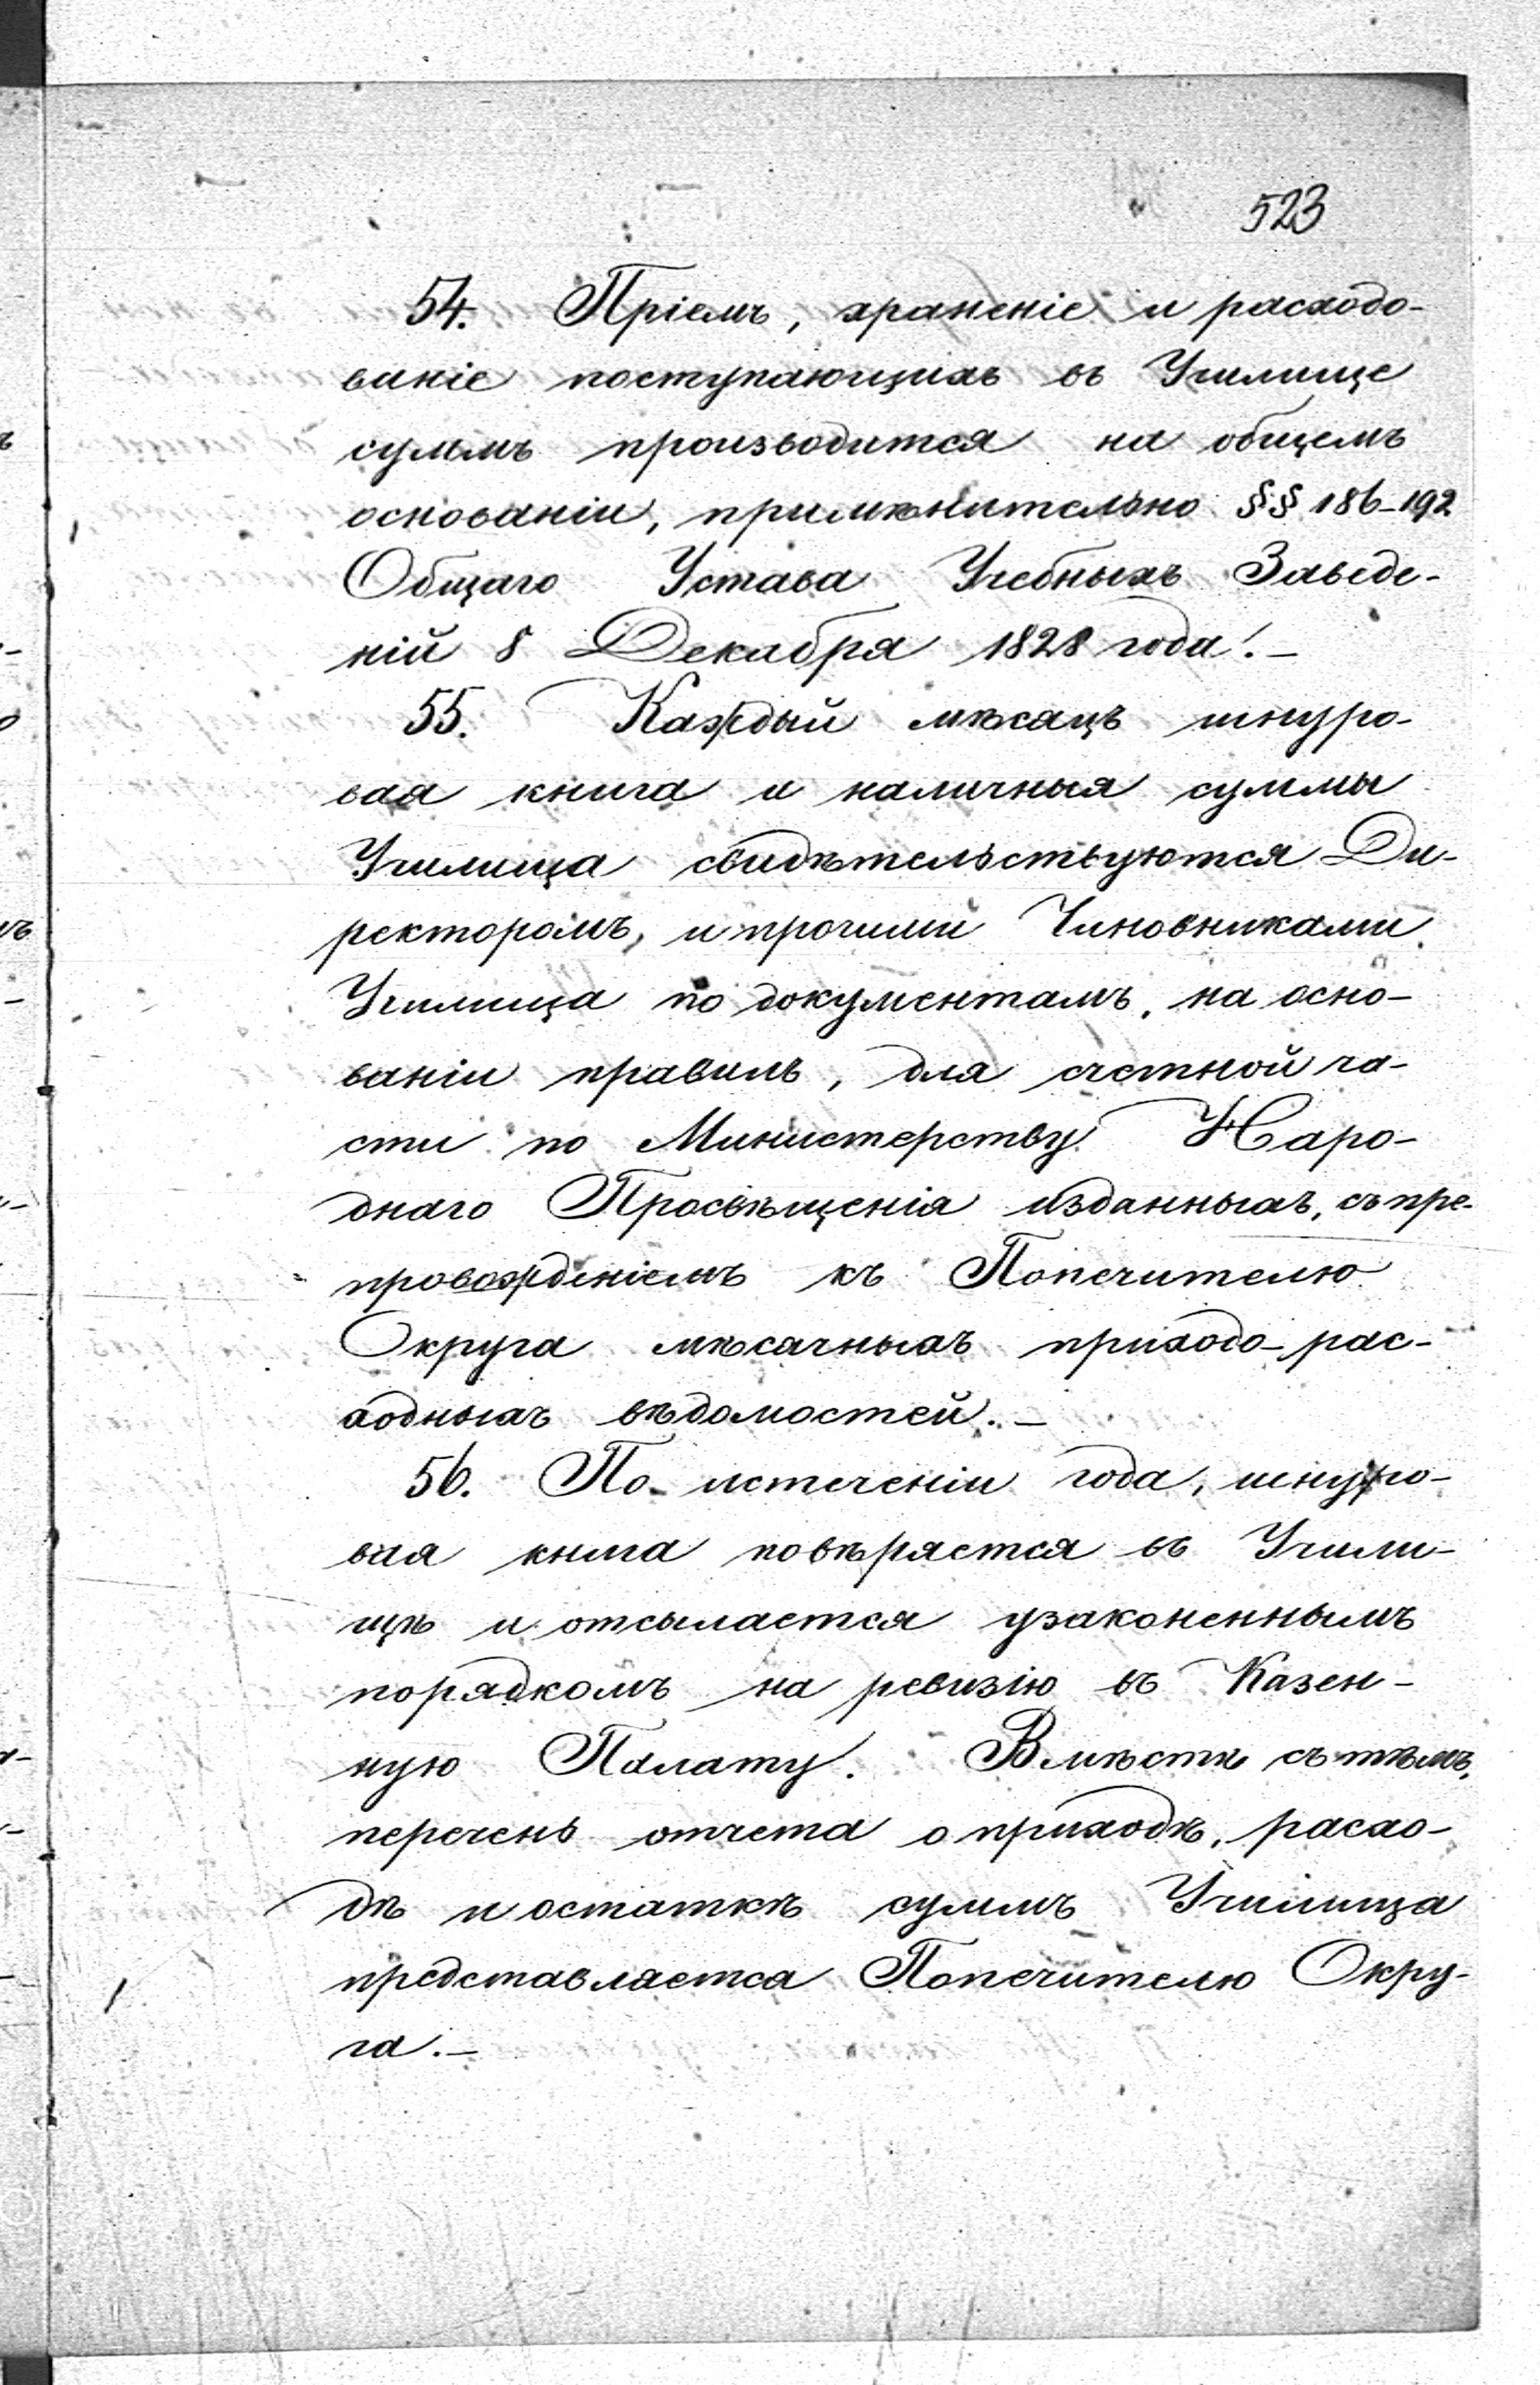 523
54. Пріемъ, храненіе и расходо-
ваніе поступающихъ въ Училище
суммъ производится на общемъ
основаніи, примѣнительно §§ 186-192
Общаго Устава Учебныхъ Заведе-
ній 8 Декабря 1828 года. -
55. Каждый мѣсяцъ шнуро-
вая книга и наличныя суммы
Училища свидѣтельствуются Ди-
ректоромъ, и прочими Чиновниками
Училища по документамъ, на осно-
ваніи правилъ, для счетной ча-
сти по Министерству Наро-
днаго Просвѣщенія изданныхъ, съ пре-
провожденіемъ къ Попечителю
Округа мѣсячныхъ приходо-рас-
ходныхъ вѣдомостей. -
56. По истеченіи года, шнуро-
вая книга повѣряется въ Учили-
щѣ и отсылается узаконеннымъ
порядкомъ на ревизію въ Казен-
ную Палату. Вмѣстѣ съ тѣмъ,
перечень отчета о приходѣ, расхо-
дѣ и остаткѣ суммъ Училища
представляется Попечителю Окру-
га. -